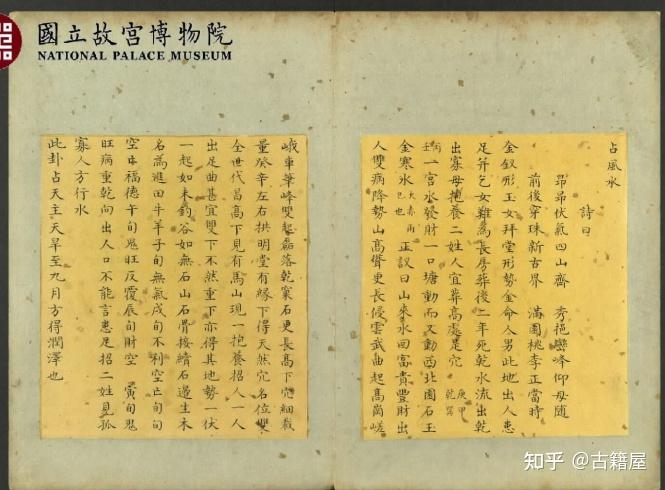 國立故宮博物院
NATIONAL PALACE MUSEUM
占風水
詩曰
昂昂伏氣四山齊　秀挹巒峰仰母隨
前後穿珠新古界　滿園桃李正當時
金釵形玉女拜堂形勢金命人男此地出人患
足并乞女難為長房葬後二年死乾水流出乾
出寡母抱養二姓人宜葬高處是穴庚甲乾巽
一宮水發財一口塘動而又動西北園石玉
金寒水大赤雨己也正議曰山來水回富貴豐財出
人雙病降勢山高聳更長侵雲武曲起高崗嵯
峨車筆峰雙起磊落乾窠石更長高下完細裁
量癸辛左右拱明堂有緣下得天然穴名位雙
全世代昌高下見有馬山現一抱養招人一人
出足曲甚宜雙下不然重下亦得其地勢一伏
一起如未釣谷如無石山石骨接續石邊生未
名為進田牛羊子旬無氣戌旬不利空亡旬旬
空亡福德午旬鬼旺反覆辰旬財空　寅旬鬼
旺病重乾向出人口不能言患足招二姓見孤
寡人方行水
此卦占天主天旱至九月方得潤澤也
知乎 @古籍屋